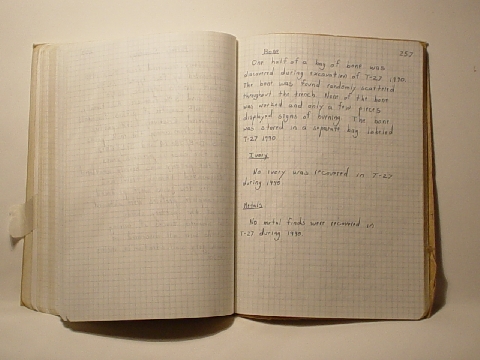 257
Bone
One half of a bag of bone was
discovered during excavation of T-27 1990.
The bone was found randomly scattered
throughout the trench. None of the bone
was worked and only a few pieces
displayed signs of burning. The bone
was stored in a separate bag labeled
T-27 1990.
Ivory
No ivory was recovered in T-27
during 1990.
Metals
No metal finds were recovered in
T-27 during 1990.